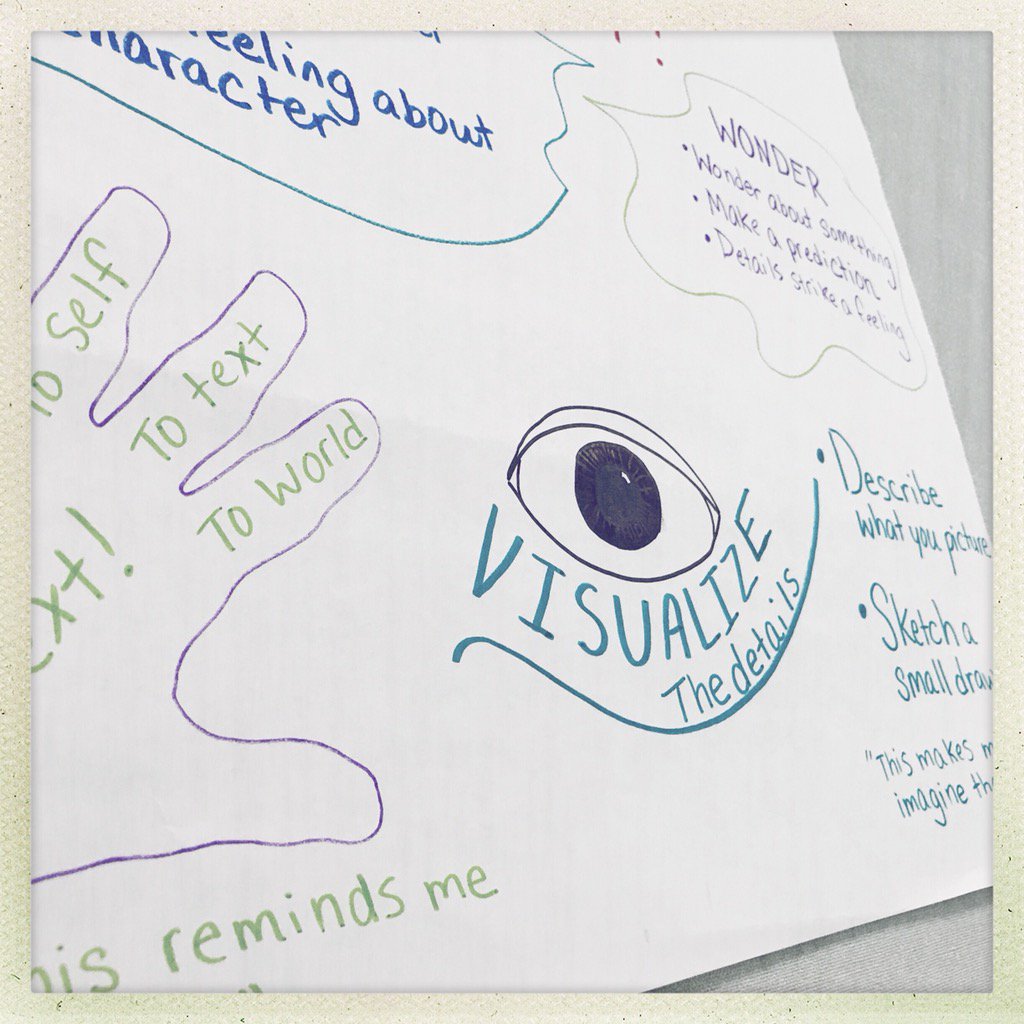 feeling about
character
!!
WONDER
• Wonder about something
• Make a prediction
• Details strike a feeling
To self
To text
To World
VISUALIZE
The details
• Describe
what you picture
• Sketch a
small
"This makes
imagine
reminds me